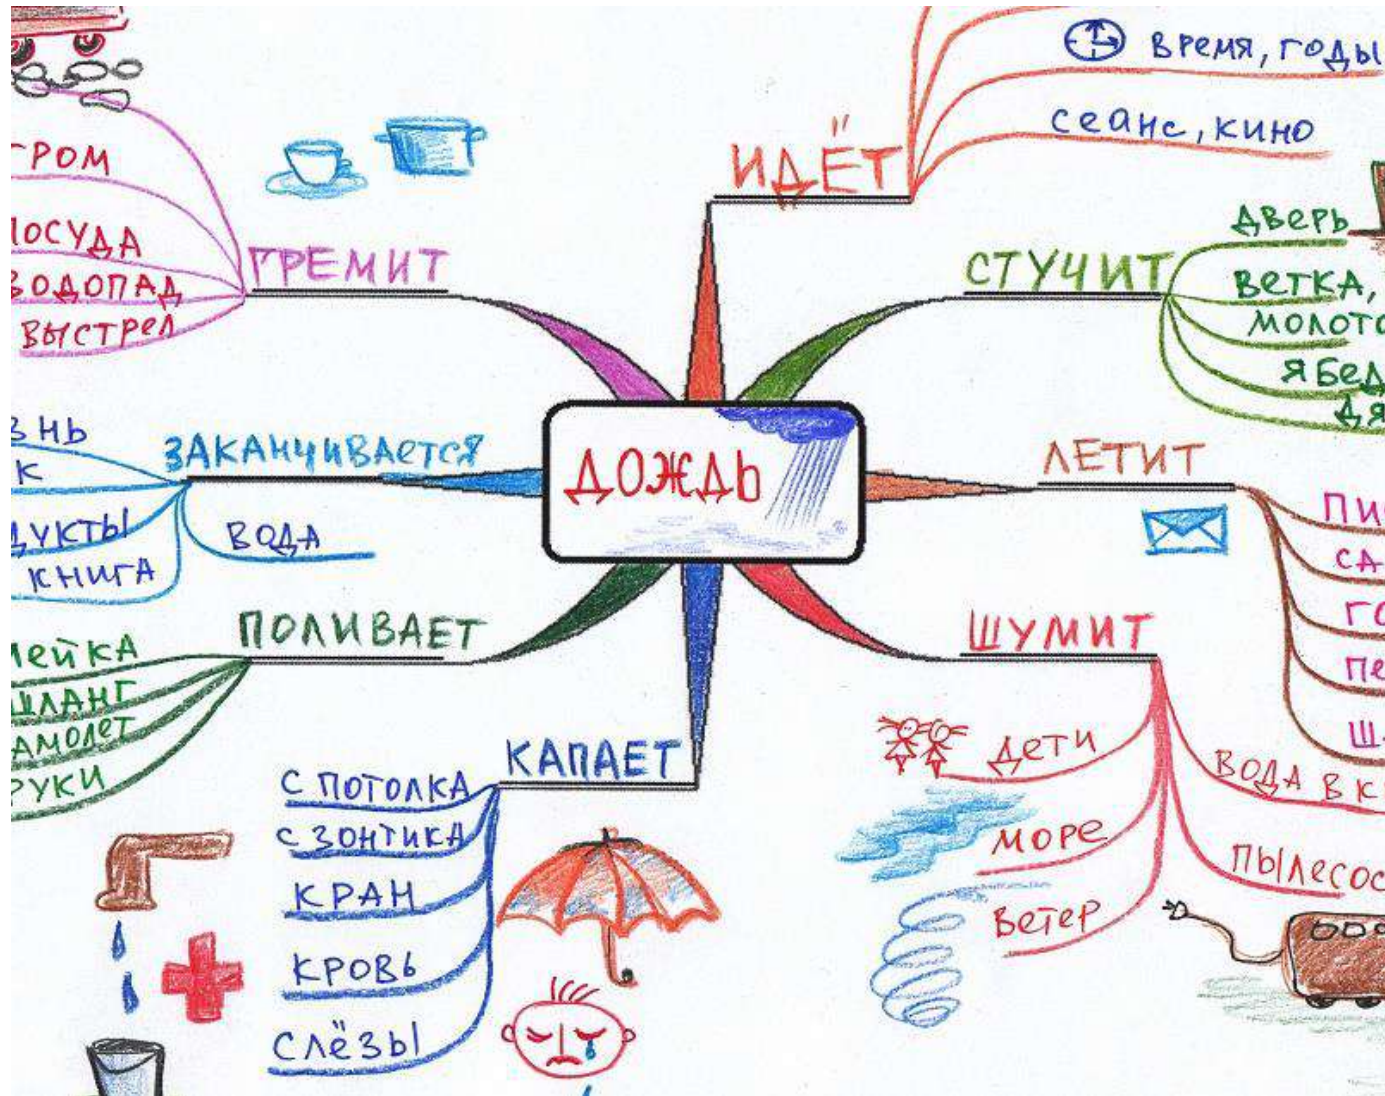 ДОЖДЬ
ИДЁТ
ВРЕМЯ, ГОДЫ
СЕАНС, КИНО
СТУЧИТ
ДВЕРЬ
ВЕТКА,
МОЛОТО
ЯБЕД
ДЯ
ЛЕТИТ
ПИ
СА
ГО
ПЕ
Ш
ШУМИТ
ДЕТИ
МОРЕ
ВЕТЕР
ВОДА В К
ПЫЛЕСОС
КАПАЕТ
С ПОТОЛКА
С ЗОНТИКА
КРАН
КРОВЬ
СЛЁЗЫ
ПОЛИВАЕТ
ЛЕЙКА
ШЛАНГ
АМОЛЕТ
РУКИ
ЗАКАНЧИВАЕТСЯ
ЗНЬ
К
ДУКТЫ
КНИГА
ВОДА
ГРЕМИТ
ГРОМ
ПОСУДА
ВОДОПАД
ВЫСТРЕЛ